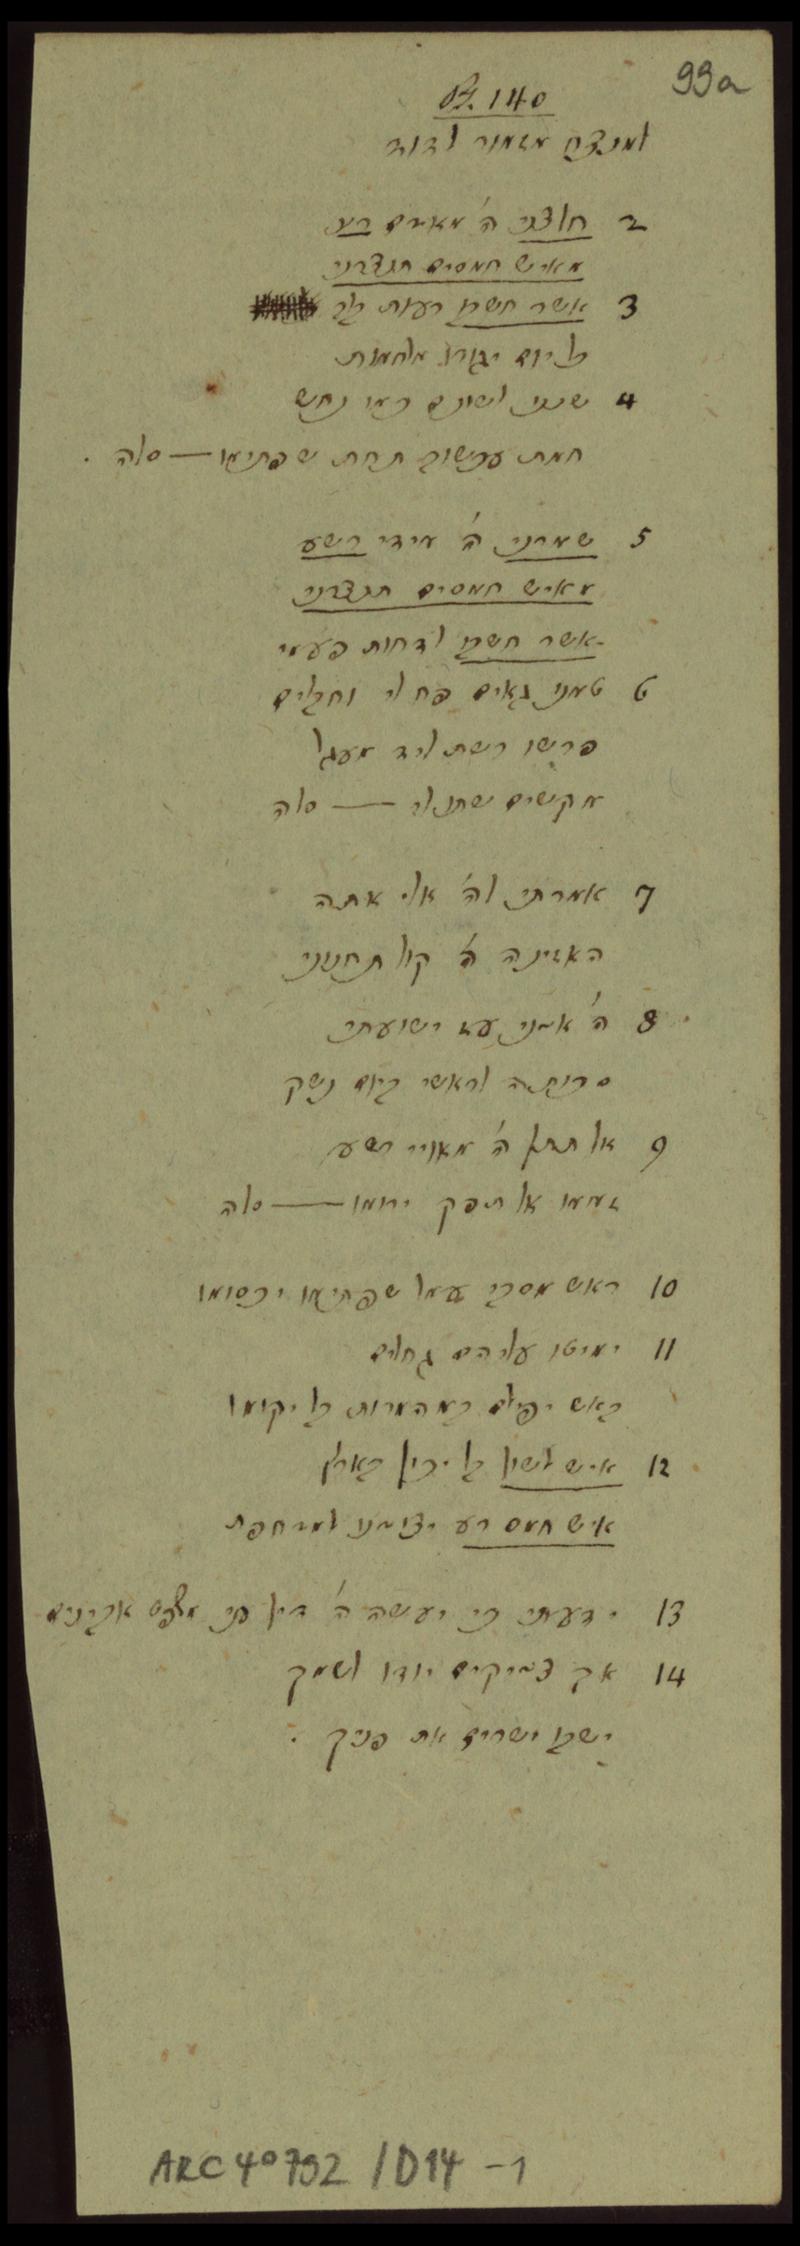 99a
Ps. 140
למנצח מזמור לדוד
2 חלצני ה' מאדם רע
מאיש חמסים תנצרני
3 אשר חשבו רעות בלב
כל יום יגורו מלחמות
4 שננו לשונם כמו נחש
חמת עכשוב תחת שפתימו — סלה .
5 שמרני ה' מידי רשע
מאיש חמסים תנצרני
אשר חשבו לדחות פעמי
6 טמנו גאים פח לי וחבלים
פרשו רשת ליד מעגל
מקשים שתו לי — סלה
7 אמרתי לה' אלי אתה
האזינה ה' קול תחנוני
8 ה' אדני עז ישועתי
סכותה לראשי ביום נשק
9 אל תתן ה' מאויי רשע
זממו אל תפק ירומו — סלה
10 ראש מסבי עמל שפתימו יכסומו
11 ימיטו עליהם גחלים
באש יפילם במהמרות בל יקומו
12 איש לשון בל יכון בארץ
איש חמס רע יצודנו למדחפת
13 ידעתי כי יעשה ה' דין עני משפט אביונים
14 אך צדיקים יודו לשמך
ישבו ישרים את פניך .
ARC 4° 792 / D14 -1